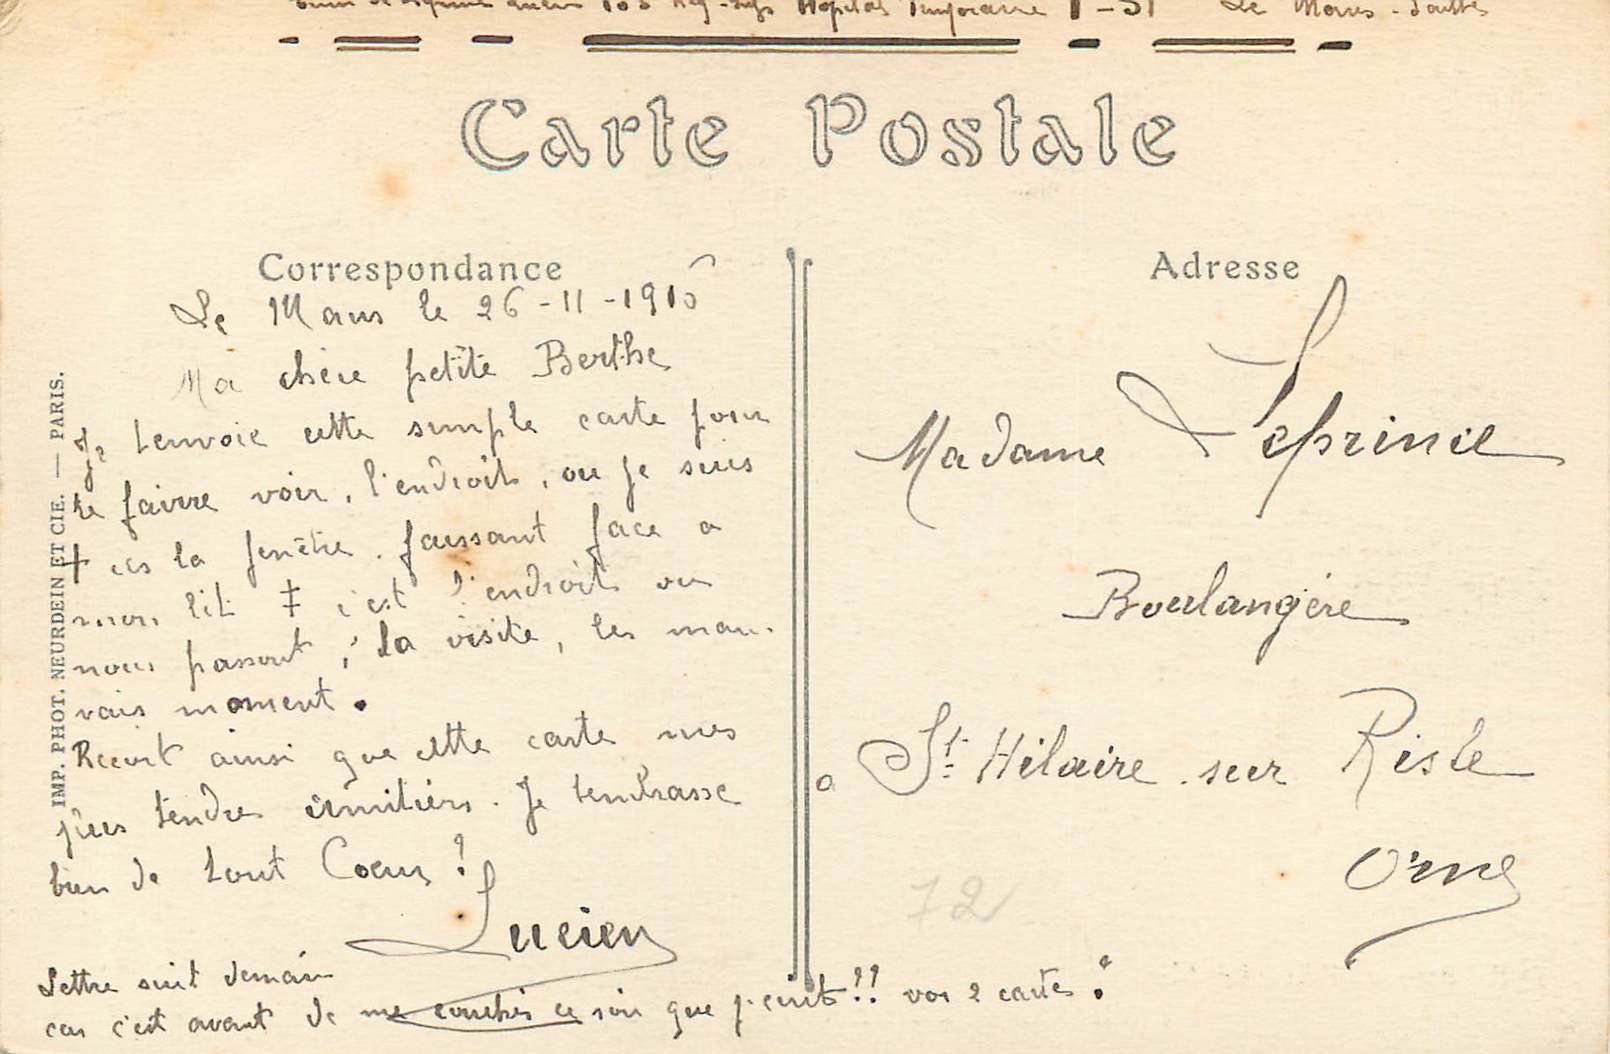 Hopital Temporaire Le Mans - Sarthe
Carte Postale
Correspondance
Adresse
Le Mans le 26-11-1915
Ma chère petite Berthe
Je tenvoie cette simple carte pour
te fairre voir, l'endroit, ou je suis
la fenêtre. faissant face a
mon lit ‡ c'est l'endroit ou
nous passont, la visite, les mau-
vais moment.
Recoit ainsi que cette carte mes
plus tendres amitiers. Je tembrasse
bien de tout Coeur!
Lucien
Lettre suit demain
car c'est avant de me coucher ce soir que j'ecrit!! vos 2 cartes.
Madame Leprince
Boulangère
a St. Hilaire sur Risle
Orne
72
IMP. PHOT. NEURDEIN ET CIE. — PARIS.